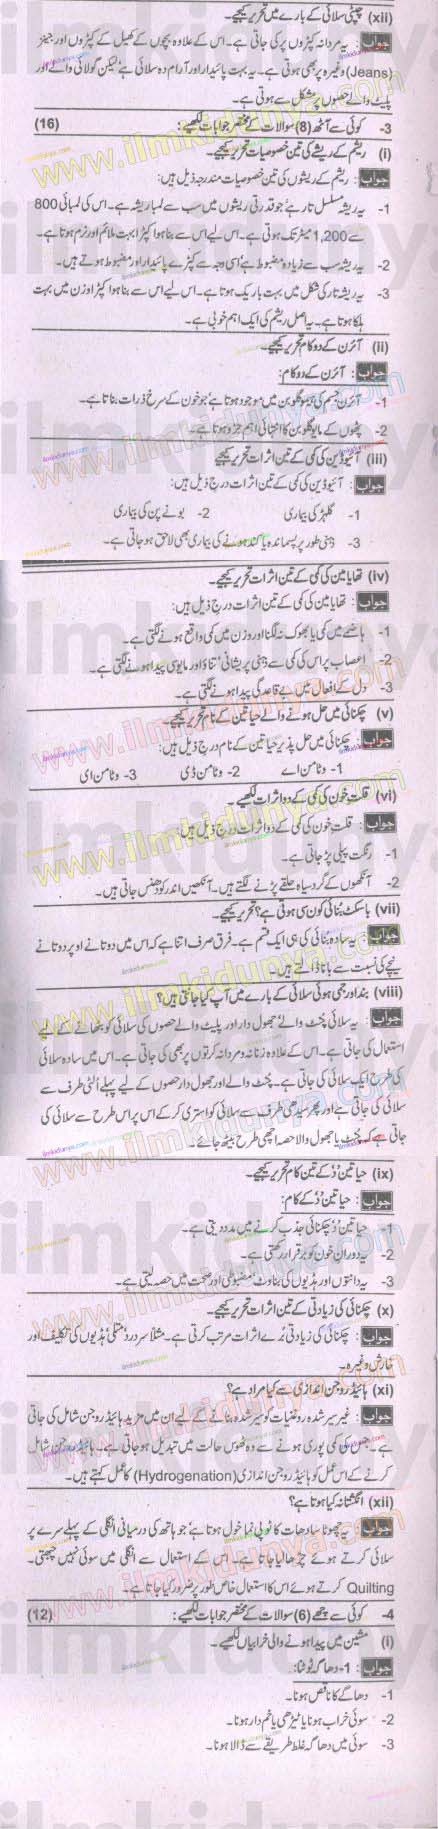 (xii) چپٹی سلائی کے بارے میں تحریر کیجیے۔
جواب : یہ مردانہ کپڑوں پر کی جاتی ہے۔ اس کے علاوہ بچوں کے کھیل کے کپڑوں اور جینز
(Jeans) وغیرہ پر بھی ہوتی ہے۔ یہ بہت پائیدار اور آرام دہ سلائی ہے لیکن گولائی والے اور
پلیٹ والے حصوں پر مشکل سے ہوتی ہے۔
3- کوئی سے آٹھ (8) سوالات کے مختصر جوابات لکھیے: (16)
(i) ریشم کے ریشے کی تین خصوصیات تحریر کیجیے۔
جواب : ریشم کے ریشوں کی تین خصوصیات مندرجہ ذیل ہیں:
1- یہ ریشہ مسلسل تار ہے جو قدرتی ریشوں میں سب سے لمبا ریشہ ہے۔ اس کی لمبائی 800
سے 1,200 میٹر تک ہوتی ہے۔ اس لیے اس سے بنا ہوا کپڑا بہت ملائم اور نرم ہوتا ہے۔
2- یہ ریشہ سب سے زیادہ مضبوط ہے اسی وجہ سے کپڑے پائیدار اور مضبوط ہوتے ہیں۔
3- یہ ریشہ تار کی شکل میں بہت باریک ہوتا ہے۔ اس لیے اس سے بنا ہوا کپڑا وزن میں بہت
ہلکا ہوتا ہے۔ یہ اصل ریشم کی ایک اہم خوبی ہے۔
(ii) آئرن کے دو کام تحریر کیجیے۔
جواب : آئرن کے دو کام:
1- آئرن جسم کی ہیموگلوبن میں موجود ہوتا ہے جو خون کے سرخ ذرات بناتا ہے۔
2- پٹھوں کے مایوگلوبن کا انتہائی اہم جزو ہوتا ہے۔
(iii) آئیوڈین کی کمی کے تین اثرات تحریر کیجیے
جواب : آئیوڈین کی کمی کے تین اثرات درج ذیل ہیں:
1- گلہڑ کی بیماری 2- بونے پن کی بیماری
3- ذہنی طور پر پسماندہ یا کند ہونے کی بیماری بھی لاحق ہو جاتی ہے۔
(iv) تھایامین کی کمی کے تین اثرات تحریر کیجیے۔
جواب : تھایامین کی کمی کے تین اثرات درج ذیل ہیں:
1- ہاضمے میں کمی یا بھوک نہ لگنا اور وزن میں کمی واقع ہونے لگتی ہے۔
2- اعصاب پر اس کی کمی سے ذہنی پریشانی، تناؤ اور مایوسی پیدا ہونے لگتی ہے۔
3- دل کے افعال میں بے قاعدگی پیدا ہونے لگتی ہے۔
(v) چکنائی میں حل ہونے والے حیاتین کے نام تحریر کیجیے۔
جواب : چکنائی میں حل پذیر حیاتین کے نام درج ذیل ہیں:
1- وٹامن اے 2- وٹامن ڈی 3- وٹامن ای
(vi) قلت خون کی کمی کے دو اثرات لکھیے۔
جواب : قلت خون کی کمی کے دو اثرات درج ذیل ہیں:
1- رنگت پیلی پڑ جاتی ہے۔
2- آنکھوں کے گرد سیاہ حلقے پڑنے لگتے ہیں۔ آنکھیں اندر کو دھنس جاتی ہیں۔
(vii) باسکٹ بنائی کون سی ہوتی ہے؟ تحریر کیجیے۔
جواب : یہ سادہ بنائی کی ہی ایک قسم ہے۔ فرق صرف اتنا ہے کہ اس میں دو تانے اوپر دو تانے
نیچے کی نسبت سے بانا ڈالتے ہیں۔
(viii) بند اور جمی ہوئی سلائی کے بارے میں آپ کیا جانتی ہیں؟
جواب : یہ سلائی چنٹ والے، جھول دار اور پلیٹ والے حصوں کی سلائی کو بٹھانے کے لیے
استعمال کی جاتی ہے۔ اس کے علاوہ زنانہ و مردانہ کرتوں پر بھی کی جاتی ہے۔ اس میں سادہ سلائی
کی طرح ایک سلائی کی جاتی ہے۔ چنٹ والے اور جھول دار حصوں کے لیے پہلے الٹی طرف سے
سلائی کی جاتی ہے اور پھر سیدھی طرف سے سلائی کو استری کر کے اس پر اس طرح سے سلائی کی
جاتی ہے کہ چنٹ یا جھول والا حصہ اچھی طرح بیٹھ جائے۔
(ix) حیاتین ڈ کے تین کام تحریر کیجیے۔
جواب : حیاتین ڈ کے کام:
1- حیاتین ڈ چکنائی جذب کرنے میں مدد دیتی ہے۔
2- یہ دوران خون کو برقرار رکھتی ہے۔
3- یہ دانتوں اور ہڈیوں کی بناوٹ، مضبوطی اور صحت میں حصہ لیتی ہے۔
(x) چکنائی کی زیادتی کے تین اثرات تحریر کیجیے۔
جواب : چکنائی کی زیادتی بُرے اثرات مرتب کرتی ہے۔ مثلاً سر درد، متلی، ہڈیوں کی تکلیف اور
خارش وغیرہ۔
(xi) ہائیڈروجن اندازی سے کیا مراد ہے؟
جواب : غیر سیر شدہ روغنیات کو سیر شدہ بنانے کے لیے ان میں مزید ہائیڈروجن شامل کی جاتی
ہے۔ جس کی کمی پوری ہونے سے وہ ٹھوس حالت میں تبدیل ہو جاتی ہے۔ ہائیڈروجن شامل
کرنے کے اس عمل کو ہائیڈروجن اندازی (Hydrogenation) کا عمل کہتے ہیں۔
(xii) انگشتانہ کیا ہوتا ہے؟
جواب : یہ چھوٹا سا دھات کا ٹوپی نما خول ہوتا ہے جو ہاتھ کی درمیانی انگلی کے پہلے سرے پر
سلائی کرتے ہوئے چڑھا لیا جاتا ہے۔ اس کے استعمال سے انگلی میں سوئی نہیں چبھتی۔
Quilting کرتے ہوئے اس کا استعمال خاص طور پر ضرور کیا جاتا ہے۔
4- کوئی سے چھے (6) سوالات کے مختصر جوابات لکھیے: (12)
(i) مشین میں پیدا ہونے والی خرابیاں لکھیے۔
جواب : 1- دھاگہ ٹوٹنا:
1- دھاگے کا ناقص ہونا۔
2- سوئی خراب ہونا یا ٹیڑھی یا خم دار ہونا۔
3- سوئی میں دھاگہ غلط طریقے سے ڈالا ہونا۔
www.ilmkidunya.com